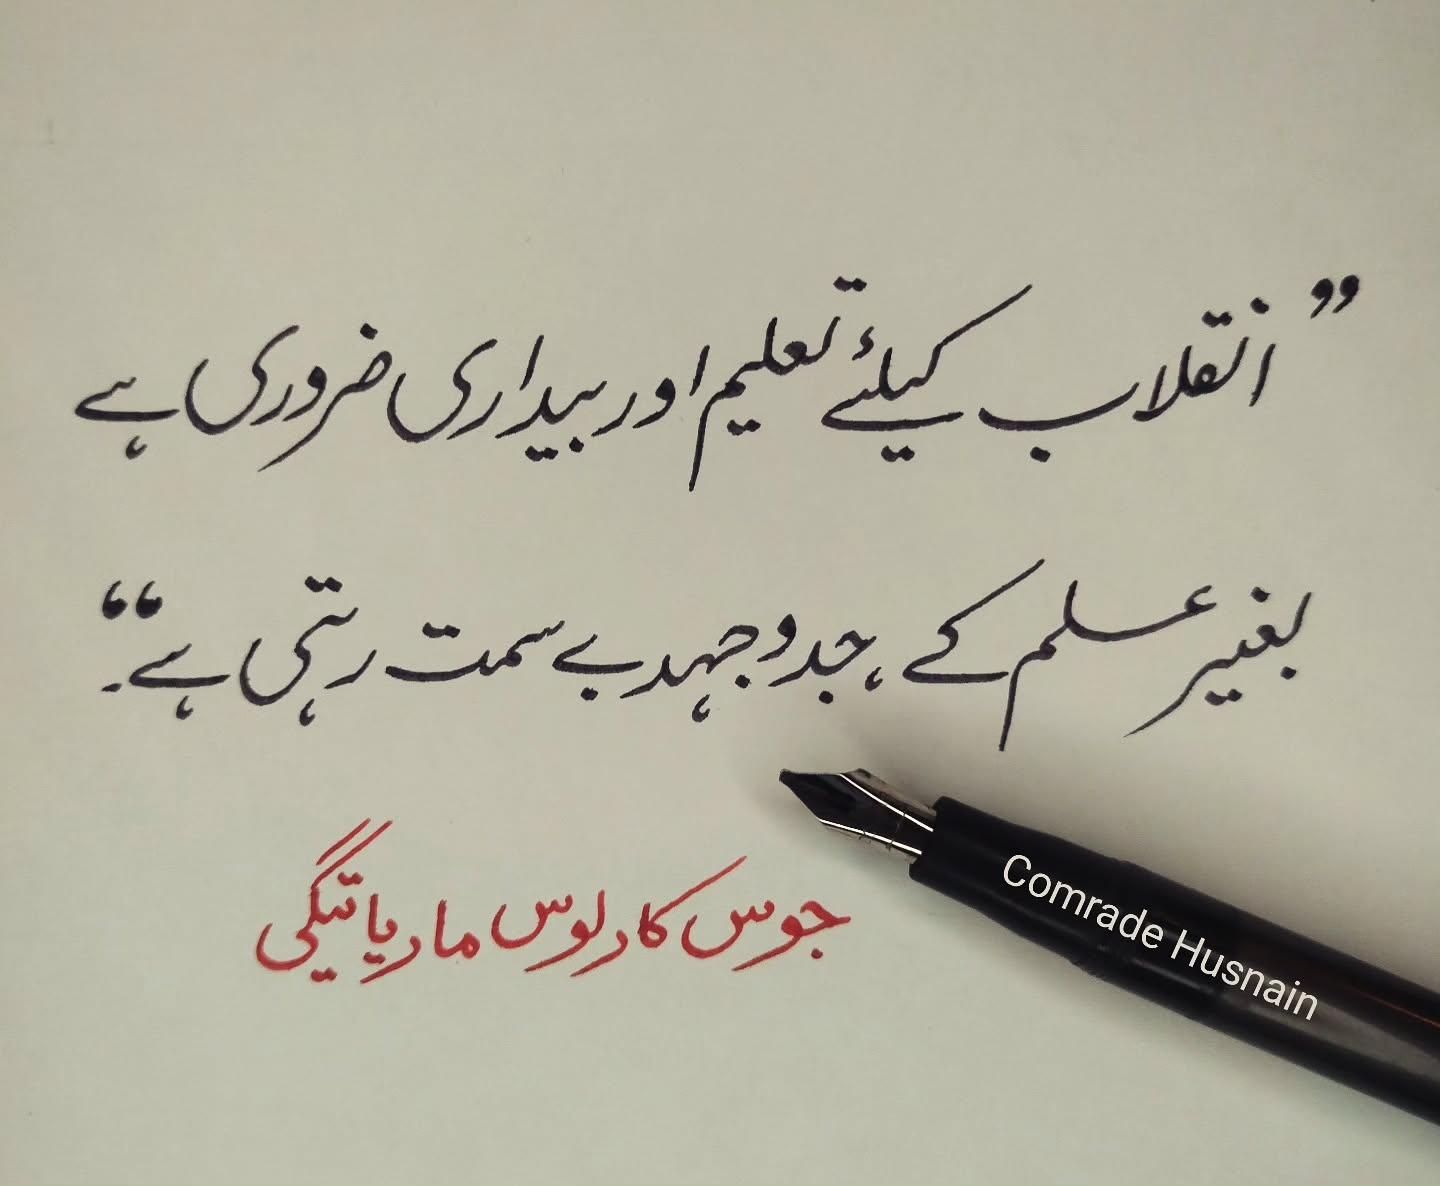 ”انقلاب کیلئے تعلیم اور بیداری ضروری ہے
بغیر علم کے، جدوجہد بے سمت رہتی ہے۔“
جوس کارلوس ماریاتیگی
Comrade Husnain